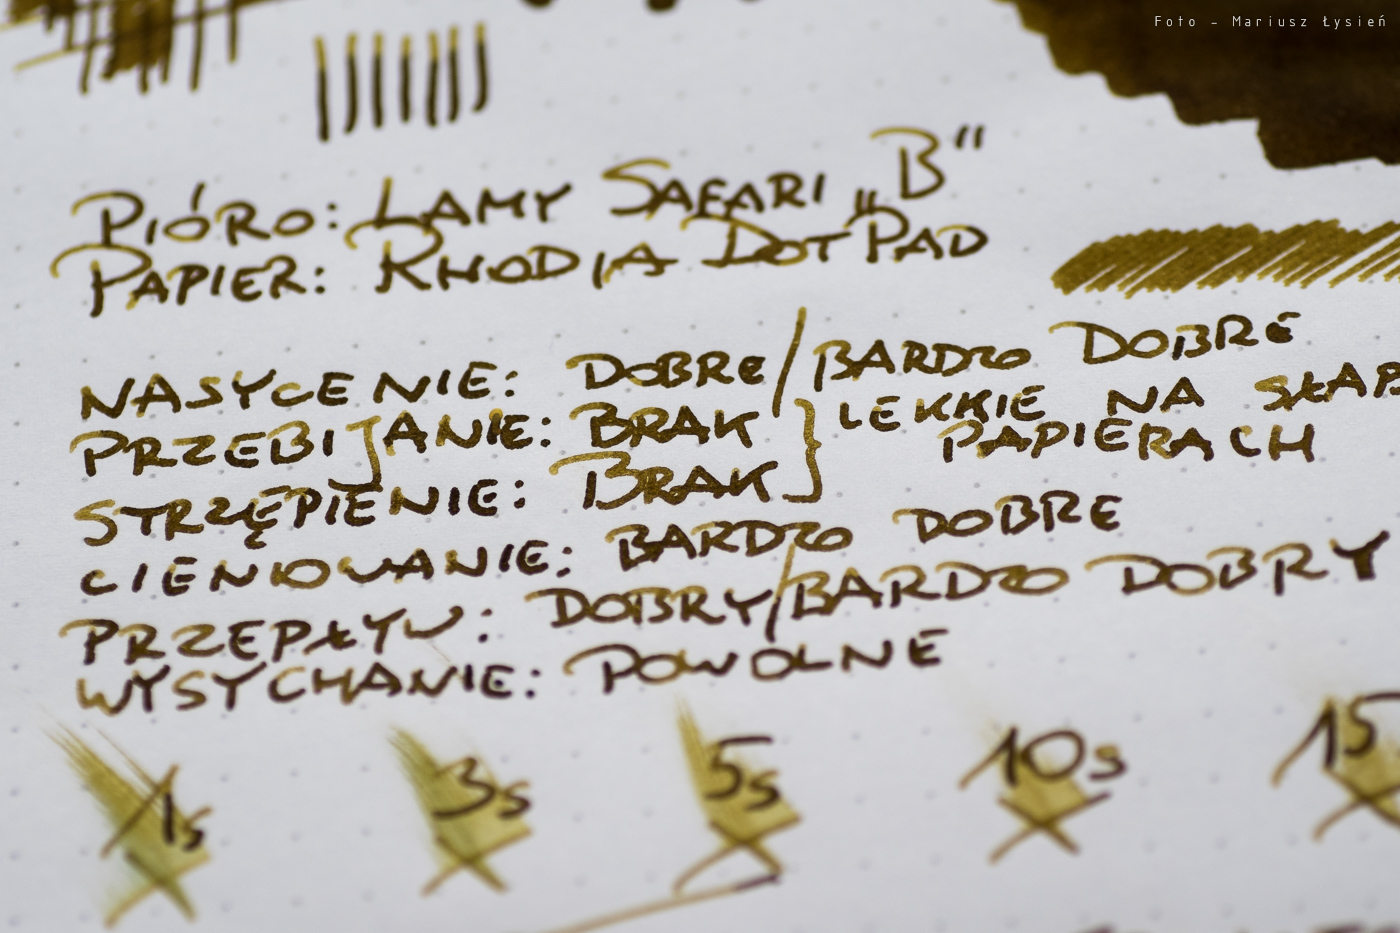 Foto - Mariusz Łysień
PIÓRO: LAMY SAFARI „B“
PAPIER: RHODIA DOTPAD
NASYCENIE: DOBRE/BARDZO DOBRE
PRZEBIJANIE: BRAK } LEKKIE NA
PAPIERACH
STRZĘPIENIE: BRAK
CIENIOWANIE: BARDZO DOBRE
PRZEPŁYW: DOBRY/BARDZO DOBRY
WYSYCHANIE: POWOLNE
1s 3s 5s 10s 15